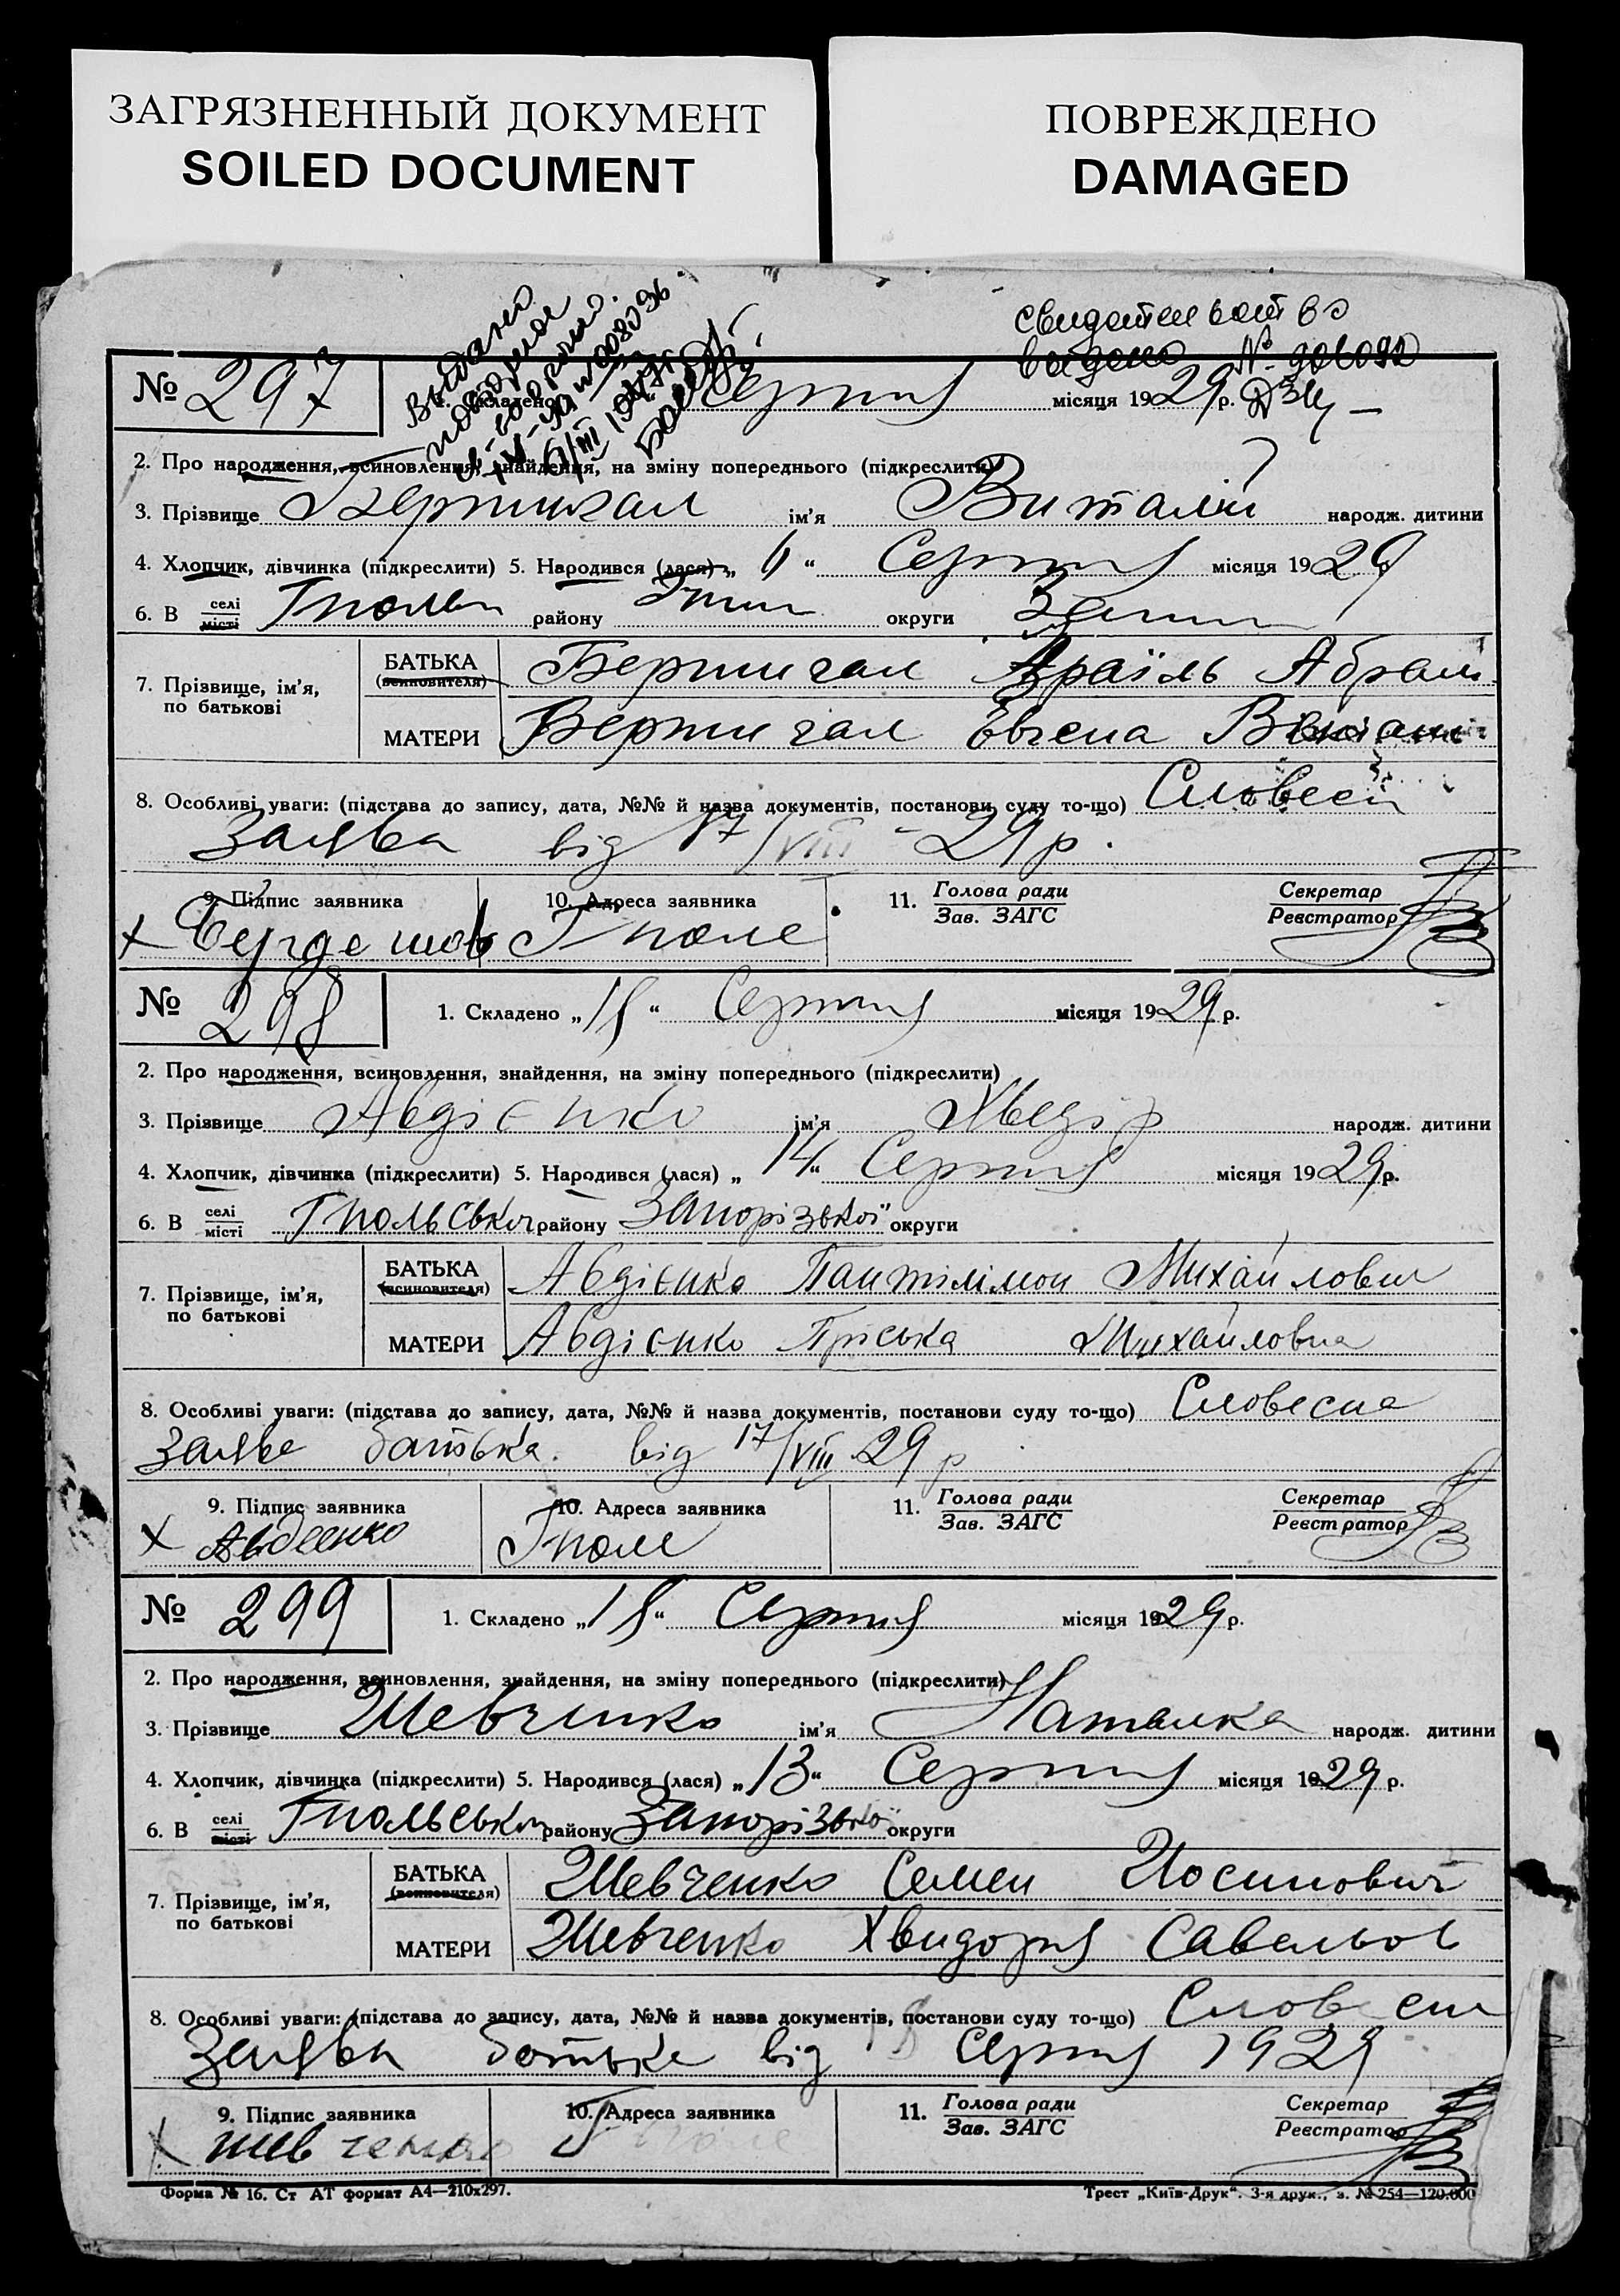 ЗАГРЯЗНЕННЫЙ ДОКУМЕНТ
SOILED DOCUMENT
ПОВРЕЖДЕНО
DAMAGED
выдано
повторное
св-во
свидетельство
выдано №
№ 297
1. Складено Серпня місяця 1929 р.
2. Про народження, всиновлення, знайдення, на зміну попереднього (підкреслити)
3. Прізвище ім'я Виталій народж. дитини
4. Хлопчик, дівчинка (підкреслити) 5. Народився (лася) „ 6 “ Серпня місяця 1929
6. В селі місті Гполи району округи Запи
7. Прізвище, ім'я, по батькові
БАТЬКА (всиновителя) Абрам
МАТЕРИ Євгена
8. Особливі уваги: (підстава до запису, дата, №№ й назва документів, постанови суду то-що) Словесн
Заява від 17/VIII - 29 р.
9. Підпис заявника 10. Адреса заявника 11. Голова ради Зав. ЗАГС Секретар Реєстратор
х Гполе
№ 298
1. Складено „ 18 “ Серпня місяця 1929 р.
2. Про народження, всиновлення, знайдення, на зміну попереднього (підкреслити)
3. Прізвище Авдієнко ім'я Хведір народж. дитини
4. Хлопчик, дівчинка (підкреслити) 5. Народився (лася) „ 14 “ Серпня місяця 1929 р.
6. В селі місті Гпольської району Запорізької округи
7. Прізвище, ім'я, по батькові
БАТЬКА (всиновителя) Авдієнко Пантілімон Михайлович
МАТЕРИ Авдієнко Пріська Михайловна
8. Особливі уваги: (підстава до запису, дата, №№ й назва документів, постанови суду то-що) Словесна
Заява батька від 17/VIII 29 р
9. Підпис заявника 10. Адреса заявника 11. Голова ради Зав. ЗАГС Секретар Реєстратор
х Авдеенко Гполе
№ 299
1. Складено „ 18 “ Серпня місяця 1929 р.
2. Про народження, всиновлення, знайдення, на зміну попереднього (підкреслити)
3. Прізвище Шевченко ім'я Наталка народж. дитини
4. Хлопчик, дівчинка (підкреслити) 5. Народився (лася) „ 13 “ Серпня місяця 1929 р.
6. В селі місті Гпольської району Запорізької округи
7. Прізвище, ім'я, по батькові
БАТЬКА (всиновителя) Шевченко Семен Йосипович
МАТЕРИ Шевченко Хвидоря Савельов
8. Особливі уваги: (підстава до запису, дата, №№ й назва документів, постанови суду то-що) Словесн
Заява батька від 18 Серпня 1929
9. Підпис заявника 10. Адреса заявника 11. Голова ради Зав. ЗАГС Секретар Реєстратор
х шевченко Гполе
Форма № 16. Ст АТ формат А4—210x297. Трест „Київ-Друк“. 3-я друк., з. № 254—120.000